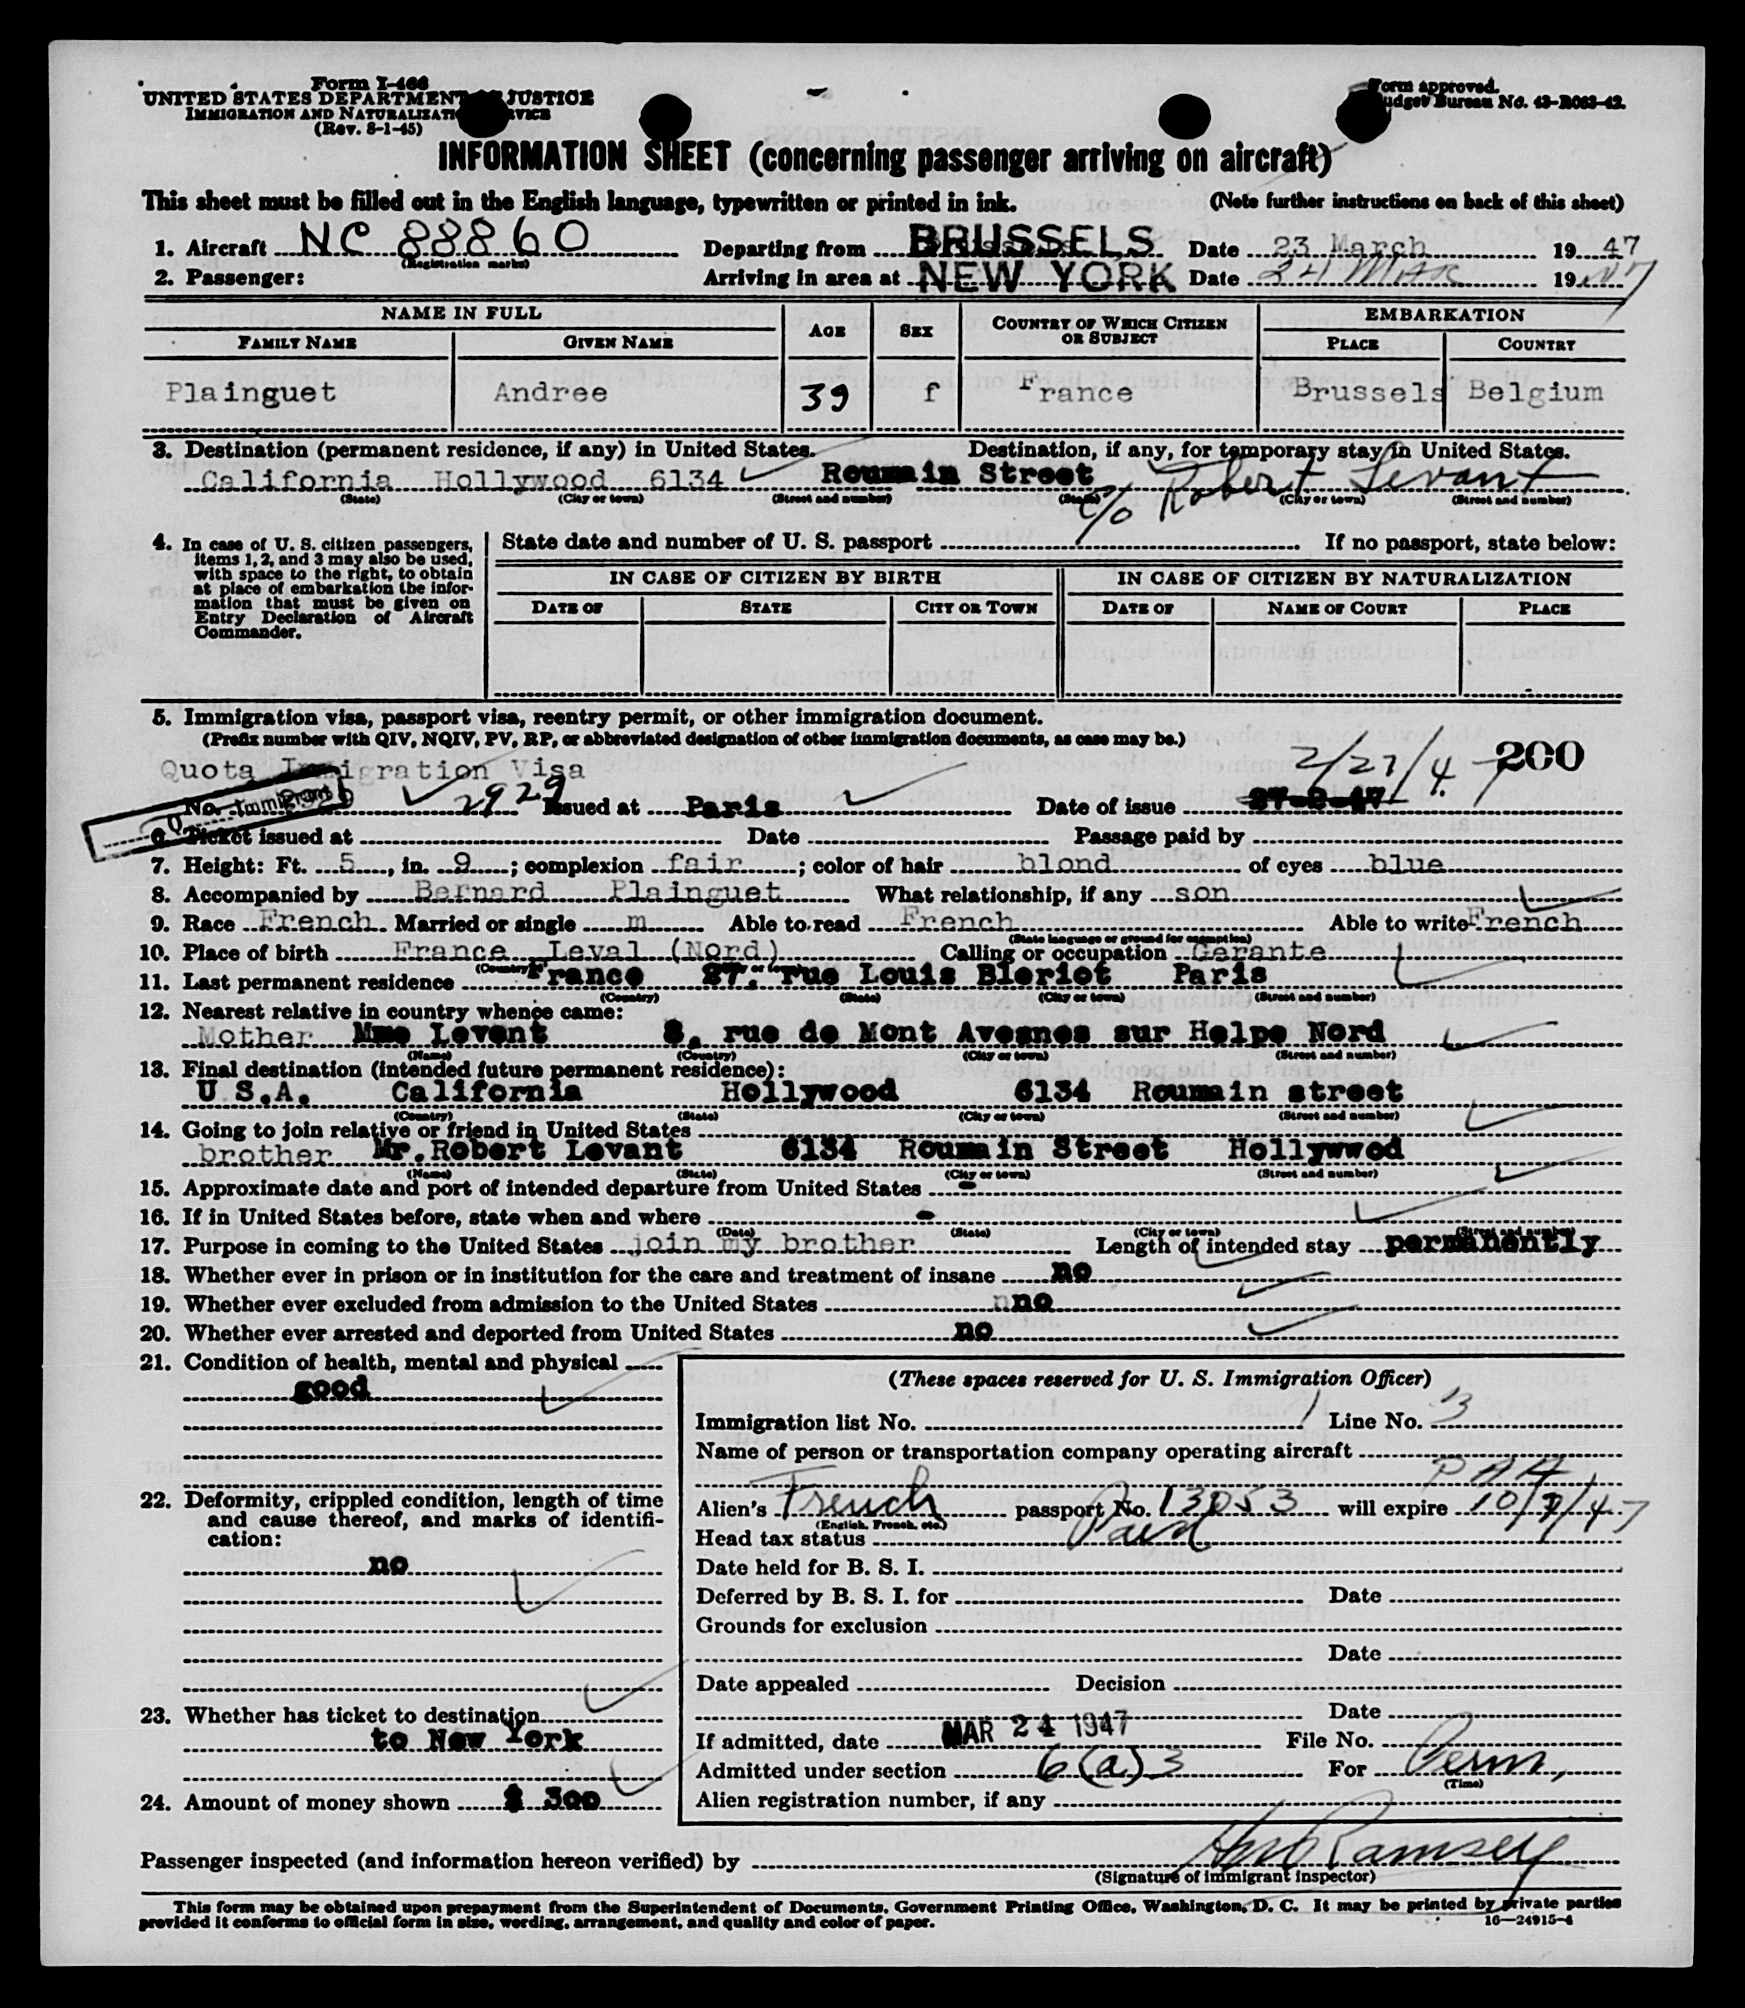 Form I-466
UNITED STATES DEPARTMENT OF JUSTICE
IMMIGRATION AND NATURALIZATION SERVICE
(Rev. 8-1-45)
Form approved.
Budget Bureau No. 43-R063-42.
INFORMATION SHEET (concerning passenger arriving on aircraft)
This sheet must be filled out in the English language, typewritten or printed in ink. (Note further instructions on back of this sheet)
1. Aircraft NC 88860 Departing from BRUSSELS Date 23 March 1947
(Registration marks)
2. Passenger: Arriving in area at NEW YORK Date 24 MAR 1947
NAME IN FULL AGE SEX COUNTRY OF WHICH CITIZEN OR SUBJECT EMBARKATION
FAMILY NAME GIVEN NAME PLACE COUNTRY
Plainguet Andree 39 f France Brussels Belgium
3. Destination (permanent residence, if any) in United States. Destination, if any, for temporary stay in United States.
California Hollywood 6134 Roumain Street c/o Robert Levant
(State) (City or town) (Street and number) (State) (City or town) (Street and number)
4. In case of U. S. citizen passengers, items 1, 2, and 3 may also be used, with space to the right, to obtain at place of embarkation the information that must be given on Entry Declaration of Aircraft Commander.
State date and number of U. S. passport If no passport, state below:
IN CASE OF CITIZEN BY BIRTH IN CASE OF CITIZEN BY NATURALIZATION
DATE OF STATE CITY OR TOWN DATE OF NAME OF COURT PLACE
5. Immigration visa, passport visa, reentry permit, or other immigration document.
(Prefix number with QIV, NQIV, PV, RP, or abbreviated designation of other immigration documents, as case may be.)
Quota Immigration Visa 2/27/47 200
No. Immigrant 2929 Issued at Paris Date of issue 27-2-47
6. Ticket issued at Date Passage paid by
7. Height: Ft. 5, in. 9; complexion fair; color of hair blond of eyes blue
8. Accompanied by Bernard Plainguet What relationship, if any son
9. Race French Married or single m Able to read French Able to write French
(State language or ground for exemption)
10. Place of birth France Leval (Nord) Calling or occupation Gerante
(Country) (City or town)
11. Last permanent residence France 27. rue Louis Bleriot Paris
(Country) (State) (City or town) (Street and number)
12. Nearest relative in country whence came:
Mother Mme Levent 8, rue de Mont Avesnes sur Helpe Nord
(Name) (Country) (City or town) (Street and number)
13. Final destination (intended future permanent residence):
U.S.A. California Hollywood 6134 Roumain street
(Country) (State) (City or town) (Street and number)
14. Going to join relative or friend in United States
brother Mr.Robert Levant 6134 Roumain Street Hollywwod
(Name) (State) (City or town) (Street and number)
15. Approximate date and port of intended departure from United States -
16. If in United States before, state when and where -
(Date) (State) (City or town) (Street and number)
17. Purpose in coming to the United States join my brother Length of intended stay permanently
18. Whether ever in prison or in institution for the care and treatment of insane no
19. Whether ever excluded from admission to the United States no
20. Whether ever arrested and deported from United States no
21. Condition of health, mental and physical
good
22. Deformity, crippled condition, length of time and cause thereof, and marks of identification:
no
23. Whether has ticket to destination
to New York
24. Amount of money shown $ 300
(These spaces reserved for U. S. Immigration Officer)
Immigration list No. 1 Line No. 3
Name of person or transportation company operating aircraft
PAA
Alien's French passport No. 13053 will expire 10/7/47
(English, French, etc.)
Head tax status Paid
Date held for B. S. I.
Deferred by B. S. I. for Date
Grounds for exclusion
Date
Date appealed Decision
Date
If admitted, date MAR 24 1947 File No.
Admitted under section 6(a)3 For Perm,
(Time)
Alien registration number, if any
Passenger inspected (and information hereon verified) by Ramsey
(Signature of immigrant inspector)
This form may be obtained upon prepayment from the Superintendent of Documents, Government Printing Office, Washington, D. C. It may be printed by private parties
provided it conforms to official form in size, wording, arrangement, and quality and color of paper.
16—24915-4